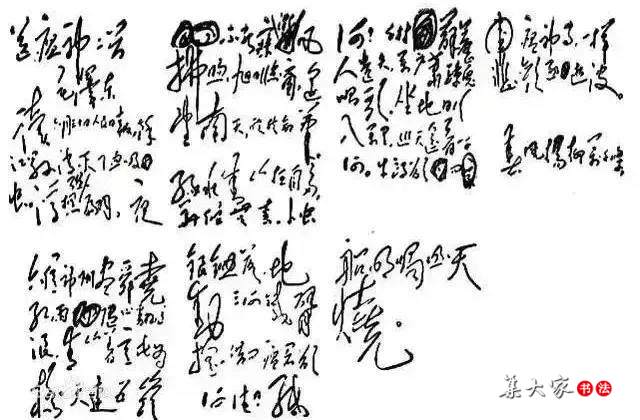 送瘟神二首
毛泽东
读六月三十日人民日报,余
江县消灭了血吸
虫,浮想联翩,夜
不能寐,微风
拂煦,旭日临窗,遥
望南天,欣然命笔。
绿水青山枉自多,
华佗无奈小虫
何!千村薜荔
人遗矢,万户萧疏鬼
唱歌,坐地日行
八万里,巡天遥看一千
河。牛郎欲问
瘟神事,一样
悲欢逐逝波。
春风杨柳万千条
六亿神州尽舜尧
红雨随心翻作
浪,青山着意化为
桥。天连五岭
银锄落,地
动三河铁臂
摇。借问瘟君欲
何往?纸
船明烛照天
烧。
集大家书法